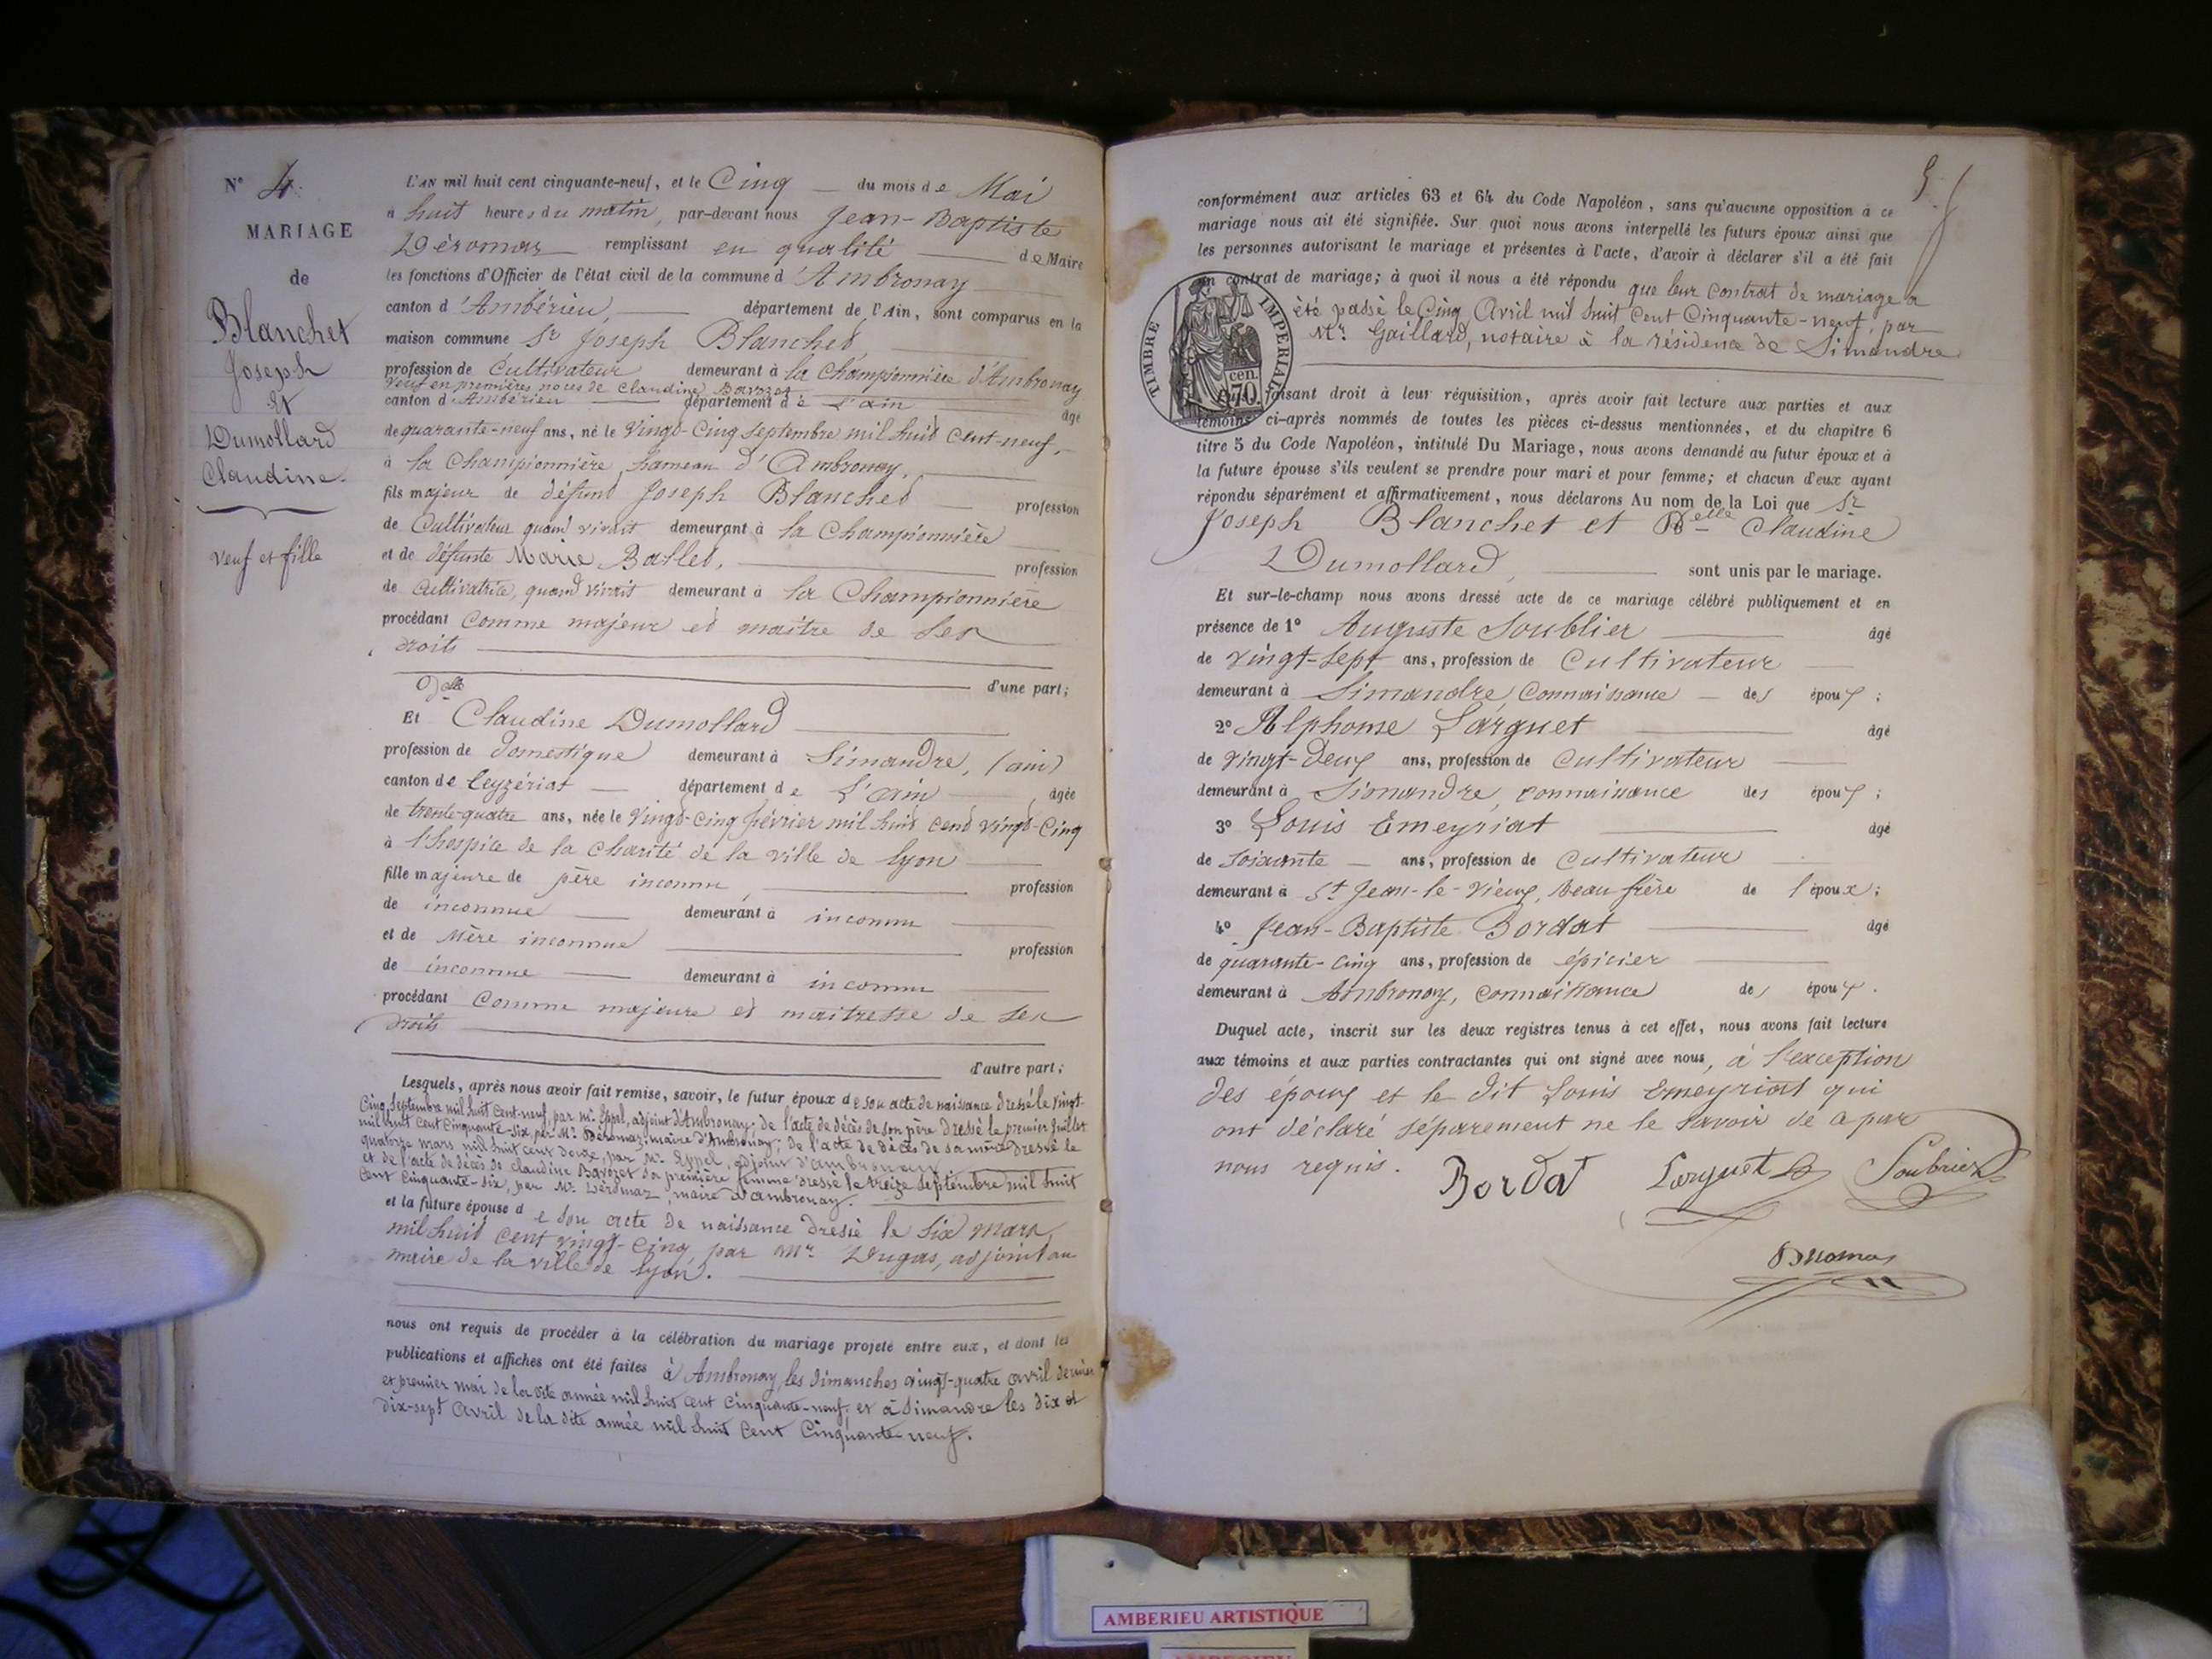 N° 4.
MARIAGE
de
Blanchet
Joseph
Et
Dumollard
Claudine.
veuf et fille
L'AN mil huit cent cinquante-neuf, et le Cinq du mois de Mai
à huit heures du matin, par-devant nous Jean-Baptiste
Déromas remplissant en qualité de Maire
les fonctions d'Officier de l'état civil de la commune d'Ambronay
canton d'Ambérieu, département de l'Ain, sont comparus en la
maison commune Sr Joseph Blanchet,
profession de Cultivateur demeurant à la Championnière d'Ambronay
veuf en premières noces de Claudine Bavozet
canton d'Ambérieu département de L'ain âgé
de quarante-neuf ans, né le Vingt-Cinq Septembre mil huit Cent-neuf,
à la Championnière, hameau d'Ambronay,
fils majeur de défunt Joseph Blanchet profession
de Cultivateur quand vivait demeurant à la Championnière
et de défunte Marie Ballet, profession
de Cultivatrice, quand vivait demeurant à la Championnière
procédant Comme majeur et maitre de ses
droits
d'une part;
Delle
Et Claudine Dumollard
profession de domestique demeurant à Simandre, (ain)
canton de Ceyzériat département de L'ain âgée
de trente-quatre ans, née le Vingt-Cinq février mil huit cent vingt-Cinq
à l'hospice de la Charité de la ville de Lyon
fille majeure de père inconnu, profession
de inconnue demeurant à inconnu
et de Mère inconnue profession
de inconnue demeurant à inconnu
procédant Comme majeure et maitresse de ses
droits
d'autre part;
Lesquels, après nous avoir fait remise, savoir, le futur époux de son acte de naissance dressé le Vingt-
Cinq Septembre mil huit Cent-neuf, par Mr. Eppel, adjoint d'Ambronay; de l'acte de décès de son père dressé le premier Juillet
mil huit Cent Cinquante-six, par Mr. Déromaz, maire d'Ambronay; de l'acte de décès de sa mère dressé le
quatorze mars mil huit cent douze, par Mr. Eppel, adjoint d'ambronay
et de l'acte de décès de Claudine Bavozet sa première femme dressé le treize Septembre mil huit
Cent Cinquante-six, par Mr. Déromaz, maire d'ambronay.
et la future épouse de son acte de naissance dressé le Six mars
mil huit Cent vingt-Cinq, par Mr. Dugas, adjoint au
maire de la ville de Lyon.
nous ont requis de procéder à la célébration du mariage projeté entre eux, et dont les
publications et affiches ont été faites à Ambronay, les dimanches vingt-quatre avril dernier
et premier mai de la dite année mil huit cent Cinquante-neuf. et à Simandre les dix et
dix-sept Avril de la dite année mil huit Cent Cinquante-neuf.
5
conformément aux articles 63 et 64 du Code Napoléon, sans qu'aucune opposition à ce
mariage nous ait été signifiée. Sur quoi nous avons interpellé les futurs époux ainsi que
les personnes autorisant le mariage et présentes à l'acte, d'avoir à déclarer s'il a été fait
un contrat de mariage; à quoi il nous a été répondu que leur Contrat de mariage a
été passé le Cinq Avril mil huit Cent Cinquante-neuf, par
Mr. Gaillard, notaire à la résidence de Simandre
TIMBRE IMPÉRIAL
cen.
70.
faisant droit à leur réquisition, après avoir fait lecture aux parties et aux
témoins ci-après nommés de toutes les pièces ci-dessus mentionnées, et du chapitre 6
titre 5 du Code Napoléon, intitulé Du Mariage, nous avons demandé au futur époux et à
la future épouse s'ils veulent se prendre pour mari et pour femme; et chacun d'eux ayant
répondu séparément et affirmativement, nous déclarons Au nom de la Loi que Sr
Joseph Blanchet et Delle Claudine
Dumollard, sont unis par le mariage.
Et sur-le-champ nous avons dressé acte de ce mariage célébré publiquement et en
présence de 1° Auguste Soublier âgé
de vingt-sept ans, profession de Cultivateur
demeurant à Simandre, Connaissance des époux;
2° Alphonse Larguet âgé
de vingt-deux ans, profession de Cultivateur
demeurant à Simandre, connaissance des époux;
3° Louis Emeyriat âgé
de soixante ans, profession de Cultivateur
demeurant à St Jean-le-Vieux, beau frère de l'époux;
4° Jean-Baptiste Bordat âgé
de quarante-cinq ans, profession de épicier
demeurant à Ambronay, connaissance des époux.
Duquel acte, inscrit sur les deux registres tenus à cet effet, nous avons fait lecture
aux témoins et aux parties contractantes qui ont signé avec nous, à l'exception
des époux et le dit Louis Emeyriat qui
ont déclaré séparement ne le savoir de a par
nous requis. Bordat Larguet Soubrier
Déromas
AMBERIEU ARTISTIQUE